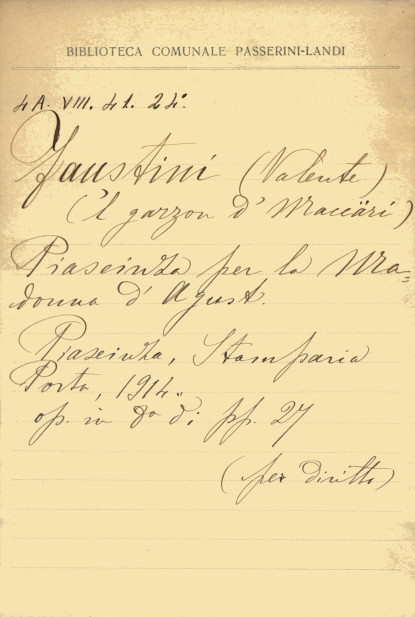 BIBLIOTECA COMUNALE PASSERINI-LANDI
4A. VIII. 41. 24°.
Faustini (Valente)
('l garzon d' Maccäri)
Piaseinza per la Ma-
donna d' Agust.
Piaseinza, Stamparia
Porta, 1914.
op. in 8° di pp. 27
(per diritto)